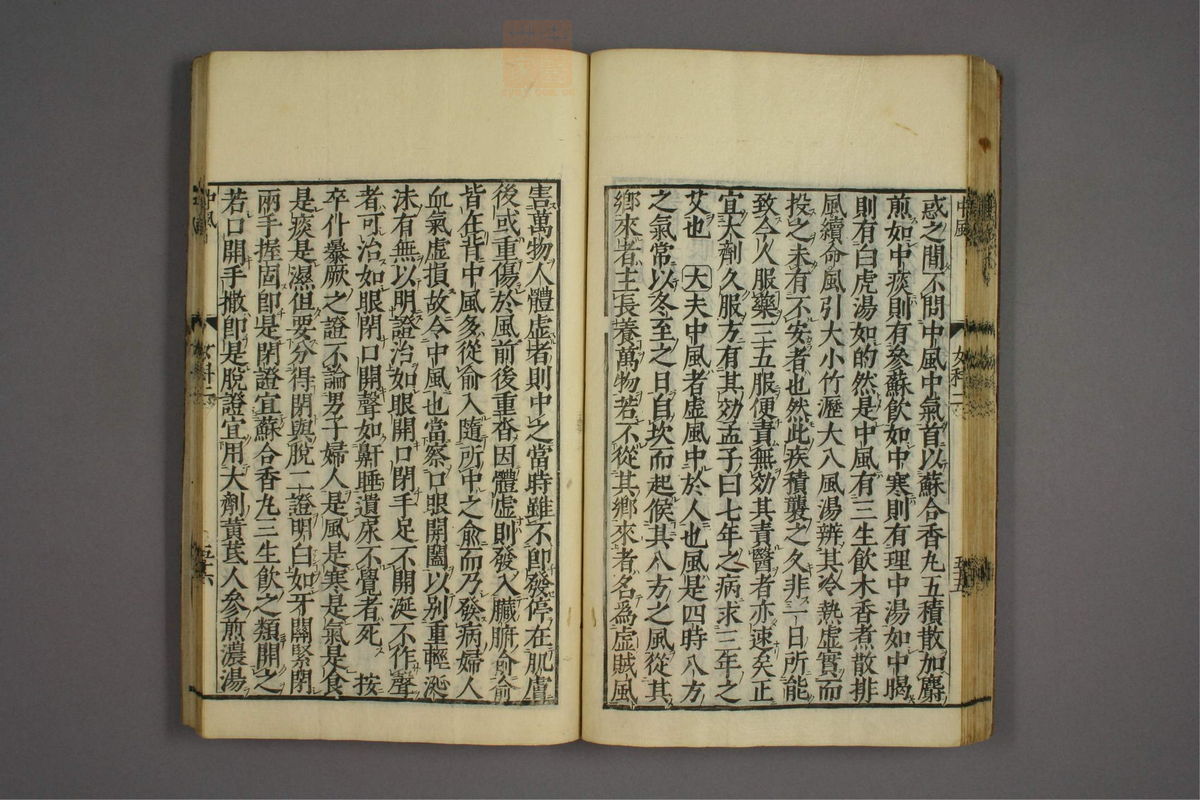 中風
女科二
五五
惑之間不問中風中氣首以蘇合香丸五積散加麝
煎如中痰則有參蘇飲如中寒則有理中湯如中暍
則有白虎湯如的然是中風有三生飲木香煮散排
風續命風引大小竹瀝大八風湯辨其冷熱虛實而
投之未有不安者也然此疾積襲之久非一日所能
致今人服藥三五服便責無効其責醫者亦速矣正
宜大劑久服方有其効孟子曰七年之病求三年之
艾也 大夫中風者虛風中於人也風是四時八方
之氣常以冬至之日自坎而起候其八方之風從其
鄉來者主長養萬物若不從其鄉來者名爲虛賊風
害萬物人體虛者則中之當時雖不卽發停在肌膚
後或重傷於風前後重沓因體虛則發入臟腑俞俞
皆在背中風多從俞入隨所中之俞而乃發病婦人
血氣虛損故令中風也當察口眼開闔以別重輕涎
沫有無以明證治如眼開口閉手足不開涎不作聲
者可治如眼閉口開聲如鼾睡遺尿不覺者死 按
卒仆暴厥之證不論男子婦人是風是寒是氣是食
是痰是濕但要分得閉與脫二證明白如牙關緊閉
兩手握固卽是閉證宜蘇合香丸三生飲之類開之
若口開手撒卽是脫證宜用大劑黃芪人參煎濃湯
中風
女科二
五六